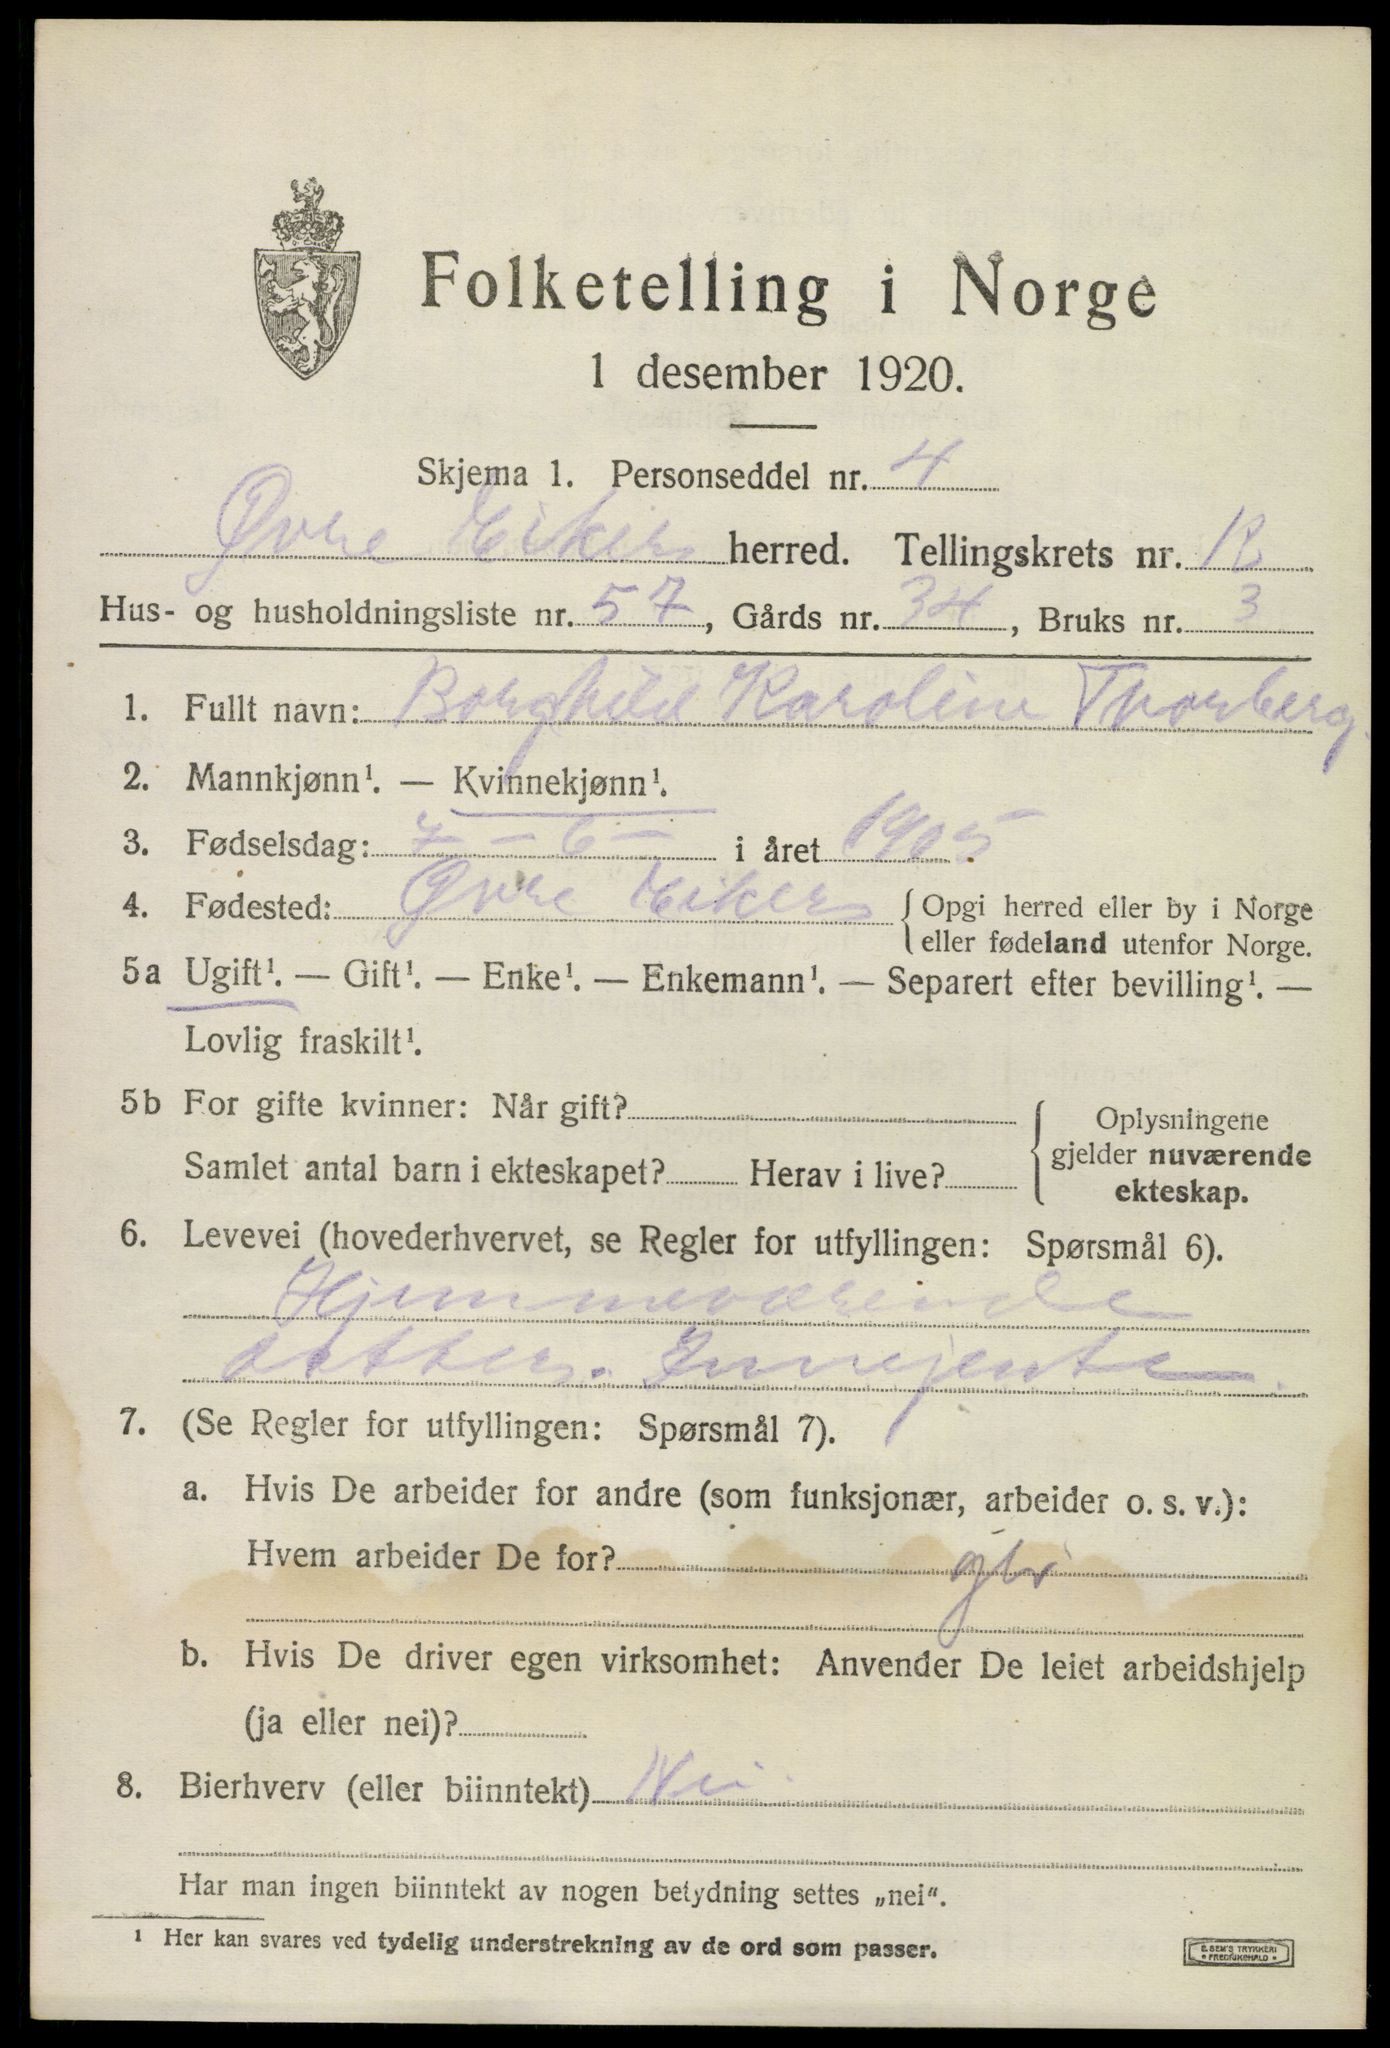 Folketelling i Norge
1 desember 1920.
Skjema 1. Personseddel nr. 4
Øvre Eiker herred. Tellingskrets nr. 12
Hus- og husholdningsliste nr. 57, Gårds nr. 34, Bruks nr. 3
1. Fullt navn: Borghild Karoline Thorberg.
2. Mannkjønn¹. — Kvinnekjønn¹.
3. Fødselsdag: 7 - 6 - i året 1905.
4. Fødested: Øvre Eiker { Opgi herred eller by i Norge
eller fødeland utenfor Norge.
5a Ugift¹. — Gift¹. — Enke¹. — Enkemann¹. — Separert efter bevilling¹. —
Lovlig fraskilt¹.
5b For gifte kvinner: Når gift? { Oplysningene
gjelder nuværende
ekteskap.
Samlet antal barn i ekteskapet? Herav i live?
6. Levevei (hovederhvervet, se Regler for utfyllingen: Spørsmål 6).
Hjemmeværende
datter. Innejente.
7. (Se Regler for utfyllingen: Spørsmål 7).
a. Hvis De arbeider for andre (som funksjonær, arbeider o. s. v.):
Hvem arbeider De for?
b. Hvis De driver egen virksomhet: Anvender De leiet arbeidshjelp
(ja eller nei)?
8. Bierhverv (eller biinntekt) Nei
Har man ingen biinntekt av nogen betydning settes „nei“.
¹ Her kan svares ved tydelig understrekning av de ord som passer.
E. SEM'S TRYKKERI
• FREDRIKSHALD •